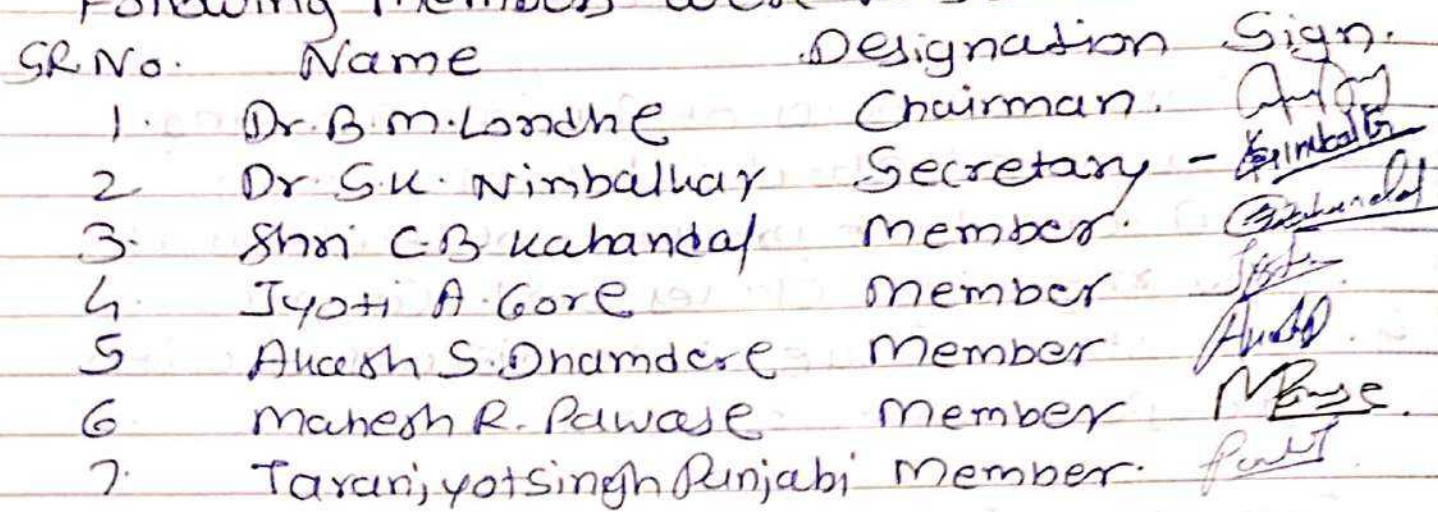 Following members were
SR.No. Name Designation Sign.
1. Dr. B.M. Londhe Chairman.
2 Dr. S.K. Nimbalkar Secretary -
3. Shri C.B Kahandal Member.
4. Jyoti A. Gore Member
5 Akash S. Dhamdere Member
6 Mahesh R. Pawase Member
7. Taranjyotsingh Punjabi Member.